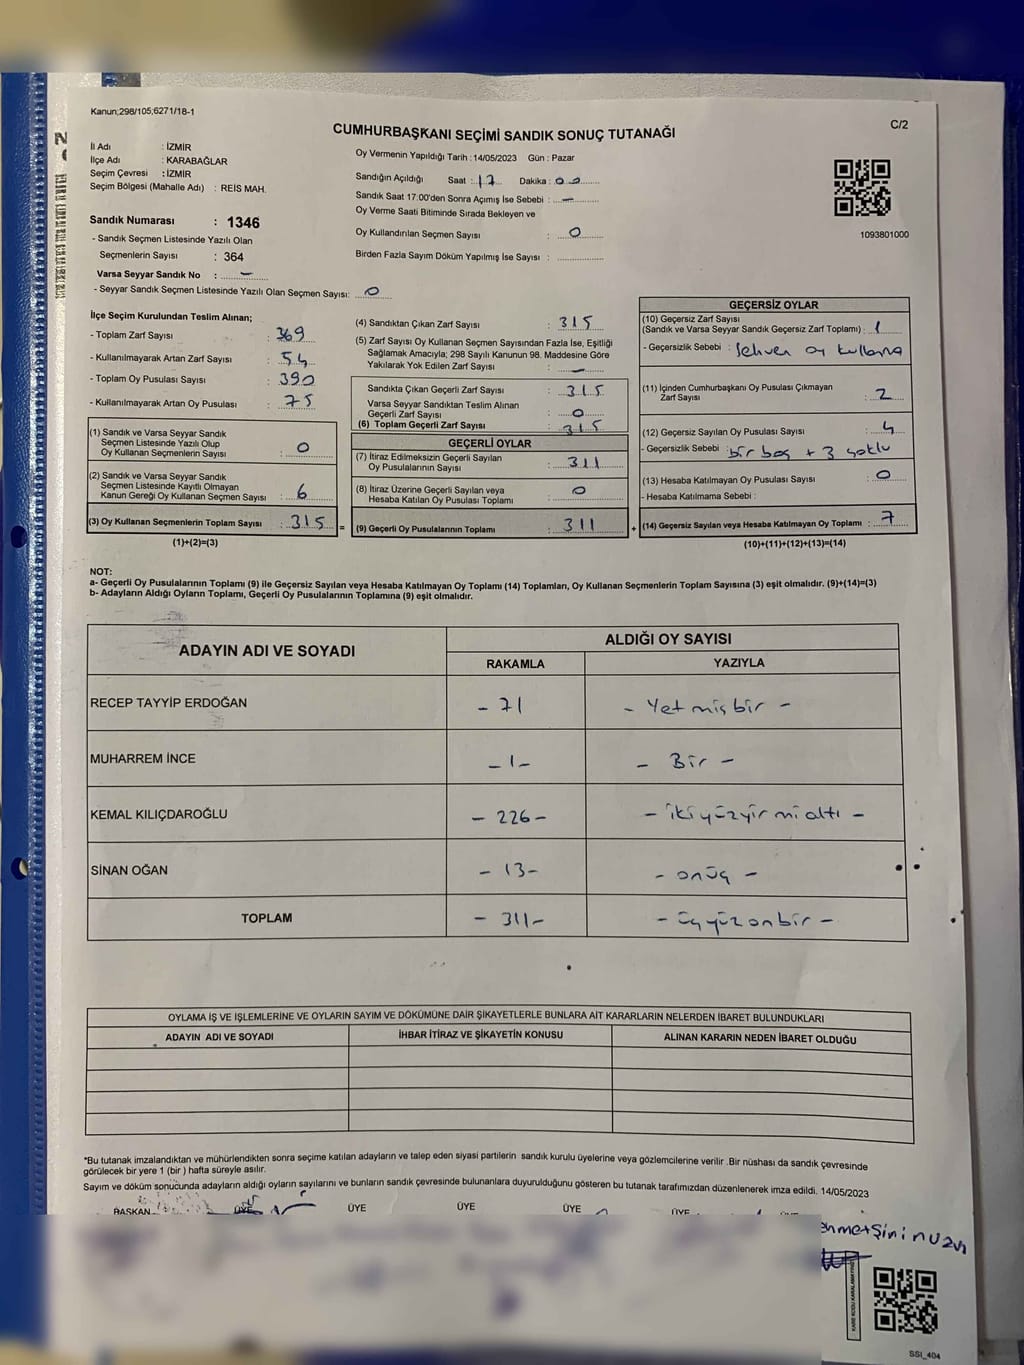 Kanun;298/105;6271/18-1
C/2
CUMHURBAŞKANI SEÇİMİ SANDIK SONUÇ TUTANAĞI
İl Adı : İZMİR
İlçe Adı : KARABAĞLAR
Seçim Çevresi : İZMİR
Seçim Bölgesi (Mahalle Adı) : REİS MAH.
Sandık Numarası : 1346
- Sandık Seçmen Listesinde Yazılı Olan
Seçmenlerin Sayısı : 364
Varsa Seyyar Sandık No : -
- Seyyar Sandık Seçmen Listesinde Yazılı Olan Seçmen Sayısı: 0
Oy Vermenin Yapıldığı Tarih : 14/05/2023 Gün : Pazar
Sandığın Açıldığı Saat : 17 Dakika : 00
Sandık Saat 17:00'den Sonra Açımış İse Sebebi : -
Oy Verme Saati Bitiminde Sırada Bekleyen ve
Oy Kullandırılan Seçmen Sayısı : 0
Birden Fazla Sayım Döküm Yapılmış İse Sayısı :
1093801000
İlçe Seçim Kurulundan Teslim Alınan;
- Toplam Zarf Sayısı : 369
- Kullanılmayarak Artan Zarf Sayısı : 54
- Toplam Oy Pusulası Sayısı : 390
- Kullanılmayarak Artan Oy Pusulası : 75
(1) Sandık ve Varsa Seyyar Sandık
Seçmen Listesinde Yazılı Olup
Oy Kullanan Seçmenlerin Sayısı : 0
(2) Sandık ve Varsa Seyyar Sandık
Seçmen Listesinde Kayıtlı Olmayan
Kanun Gereği Oy Kullanan Seçmen Sayısı : 6
(3) Oy Kullanan Seçmenlerin Toplam Sayısı : 315
(1)+(2)=(3)
(4) Sandıktan Çıkan Zarf Sayısı : 315
(5) Zarf Sayısı Oy Kullanan Seçmen Sayısından Fazla İse, Eşitliği
Sağlamak Amacıyla; 298 Sayılı Kanunun 98. Maddesine Göre
Yakılarak Yok Edilen Zarf Sayısı : -
Sandıkta Çıkan Geçerli Zarf Sayısı : 315
Varsa Seyyar Sandıktan Teslim Alınan
Geçerli Zarf Sayısı : 0
(6) Toplam Geçerli Zarf Sayısı : 315
GEÇERLİ OYLAR
(7) İtiraz Edilmeksizin Geçerli Sayılan
Oy Pusulalarının Sayısı : 311
(8) İtiraz Üzerine Geçerli Sayılan veya
Hesaba Katılan Oy Pusulası Toplamı : 0
= (9) Geçerli Oy Pusulalarının Toplamı : 311 +
GEÇERSİZ OYLAR
(10) Geçersiz Zarf Sayısı
(Sandık ve Varsa Seyyar Sandık Geçersiz Zarf Toplamı) : 1
- Geçersizlik Sebebi : Sehven oy kullanma
(11) İçinden Cumhurbaşkanı Oy Pusulası Çıkmayan
Zarf Sayısı : 2
(12) Geçersiz Sayılan Oy Pusulası Sayısı : 4
- Geçersizlik Sebebi : bir boş + 3 çoklu
(13) Hesaba Katılmayan Oy Pusulası Sayısı : 0
- Hesaba Katılmama Sebebi :
(14) Geçersiz Sayılan veya Hesaba Katılmayan Oy Toplamı : 7
(10)+(11)+(12)+(13)=(14)
NOT:
a- Geçerli Oy Pusulalarının Toplamı (9) ile Geçersiz Sayılan veya Hesaba Katılmayan Oy Toplamı (14) Toplamları, Oy Kullanan Seçmenlerin Toplam Sayısına (3) eşit olmalıdır. (9)+(14)=(3)
b- Adayların Aldığı Oyların Toplamı, Geçerli Oy Pusulalarının Toplamına (9) eşit olmalıdır.
ADAYIN ADI VE SOYADI
ALDIĞI OY SAYISI
RAKAMLA YAZIYLA
RECEP TAYYİP ERDOĞAN - 71 - Yetmişbir -
MUHARREM İNCE - 1 - - Bir -
KEMAL KILIÇDAROĞLU - 226 - - ikiyüzyirmialtı -
SİNAN OĞAN - 13 - - onüç -
TOPLAM - 311 - - üçyüzonbir -
OYLAMA İŞ VE İŞLEMLERİNE VE OYLARIN SAYIM VE DÖKÜMÜNE DAİR ŞİKAYETLERLE BUNLARA AİT KARARLARIN NELERDEN İBARET BULUNDUKLARI
ADAYIN ADI VE SOYADI İHBAR İTİRAZ VE ŞİKAYETİN KONUSU ALINAN KARARIN NEDEN İBARET OLDUĞU
*Bu tutanak imzalandıktan ve mühürlendikten sonra seçime katılan adayların ve talep eden siyasi partilerin sandık kurulu üyelerine veya gözlemcilerine verilir .Bir nüshası da sandık çevresinde
görülecek bir yere 1 (bir ) hafta süreyle asılır.
Sayım ve döküm sonucunda adayların aldığı oyların sayılarını ve bunların sandık çevresinde bulunanlara duyurulduğunu gösteren bu tutanak tarafımızdan düzenlenerek imza edildi. 14/05/2023
BAŞKAN ÜYE ÜYE ÜYE ÜYE ÜYE
SSI_404